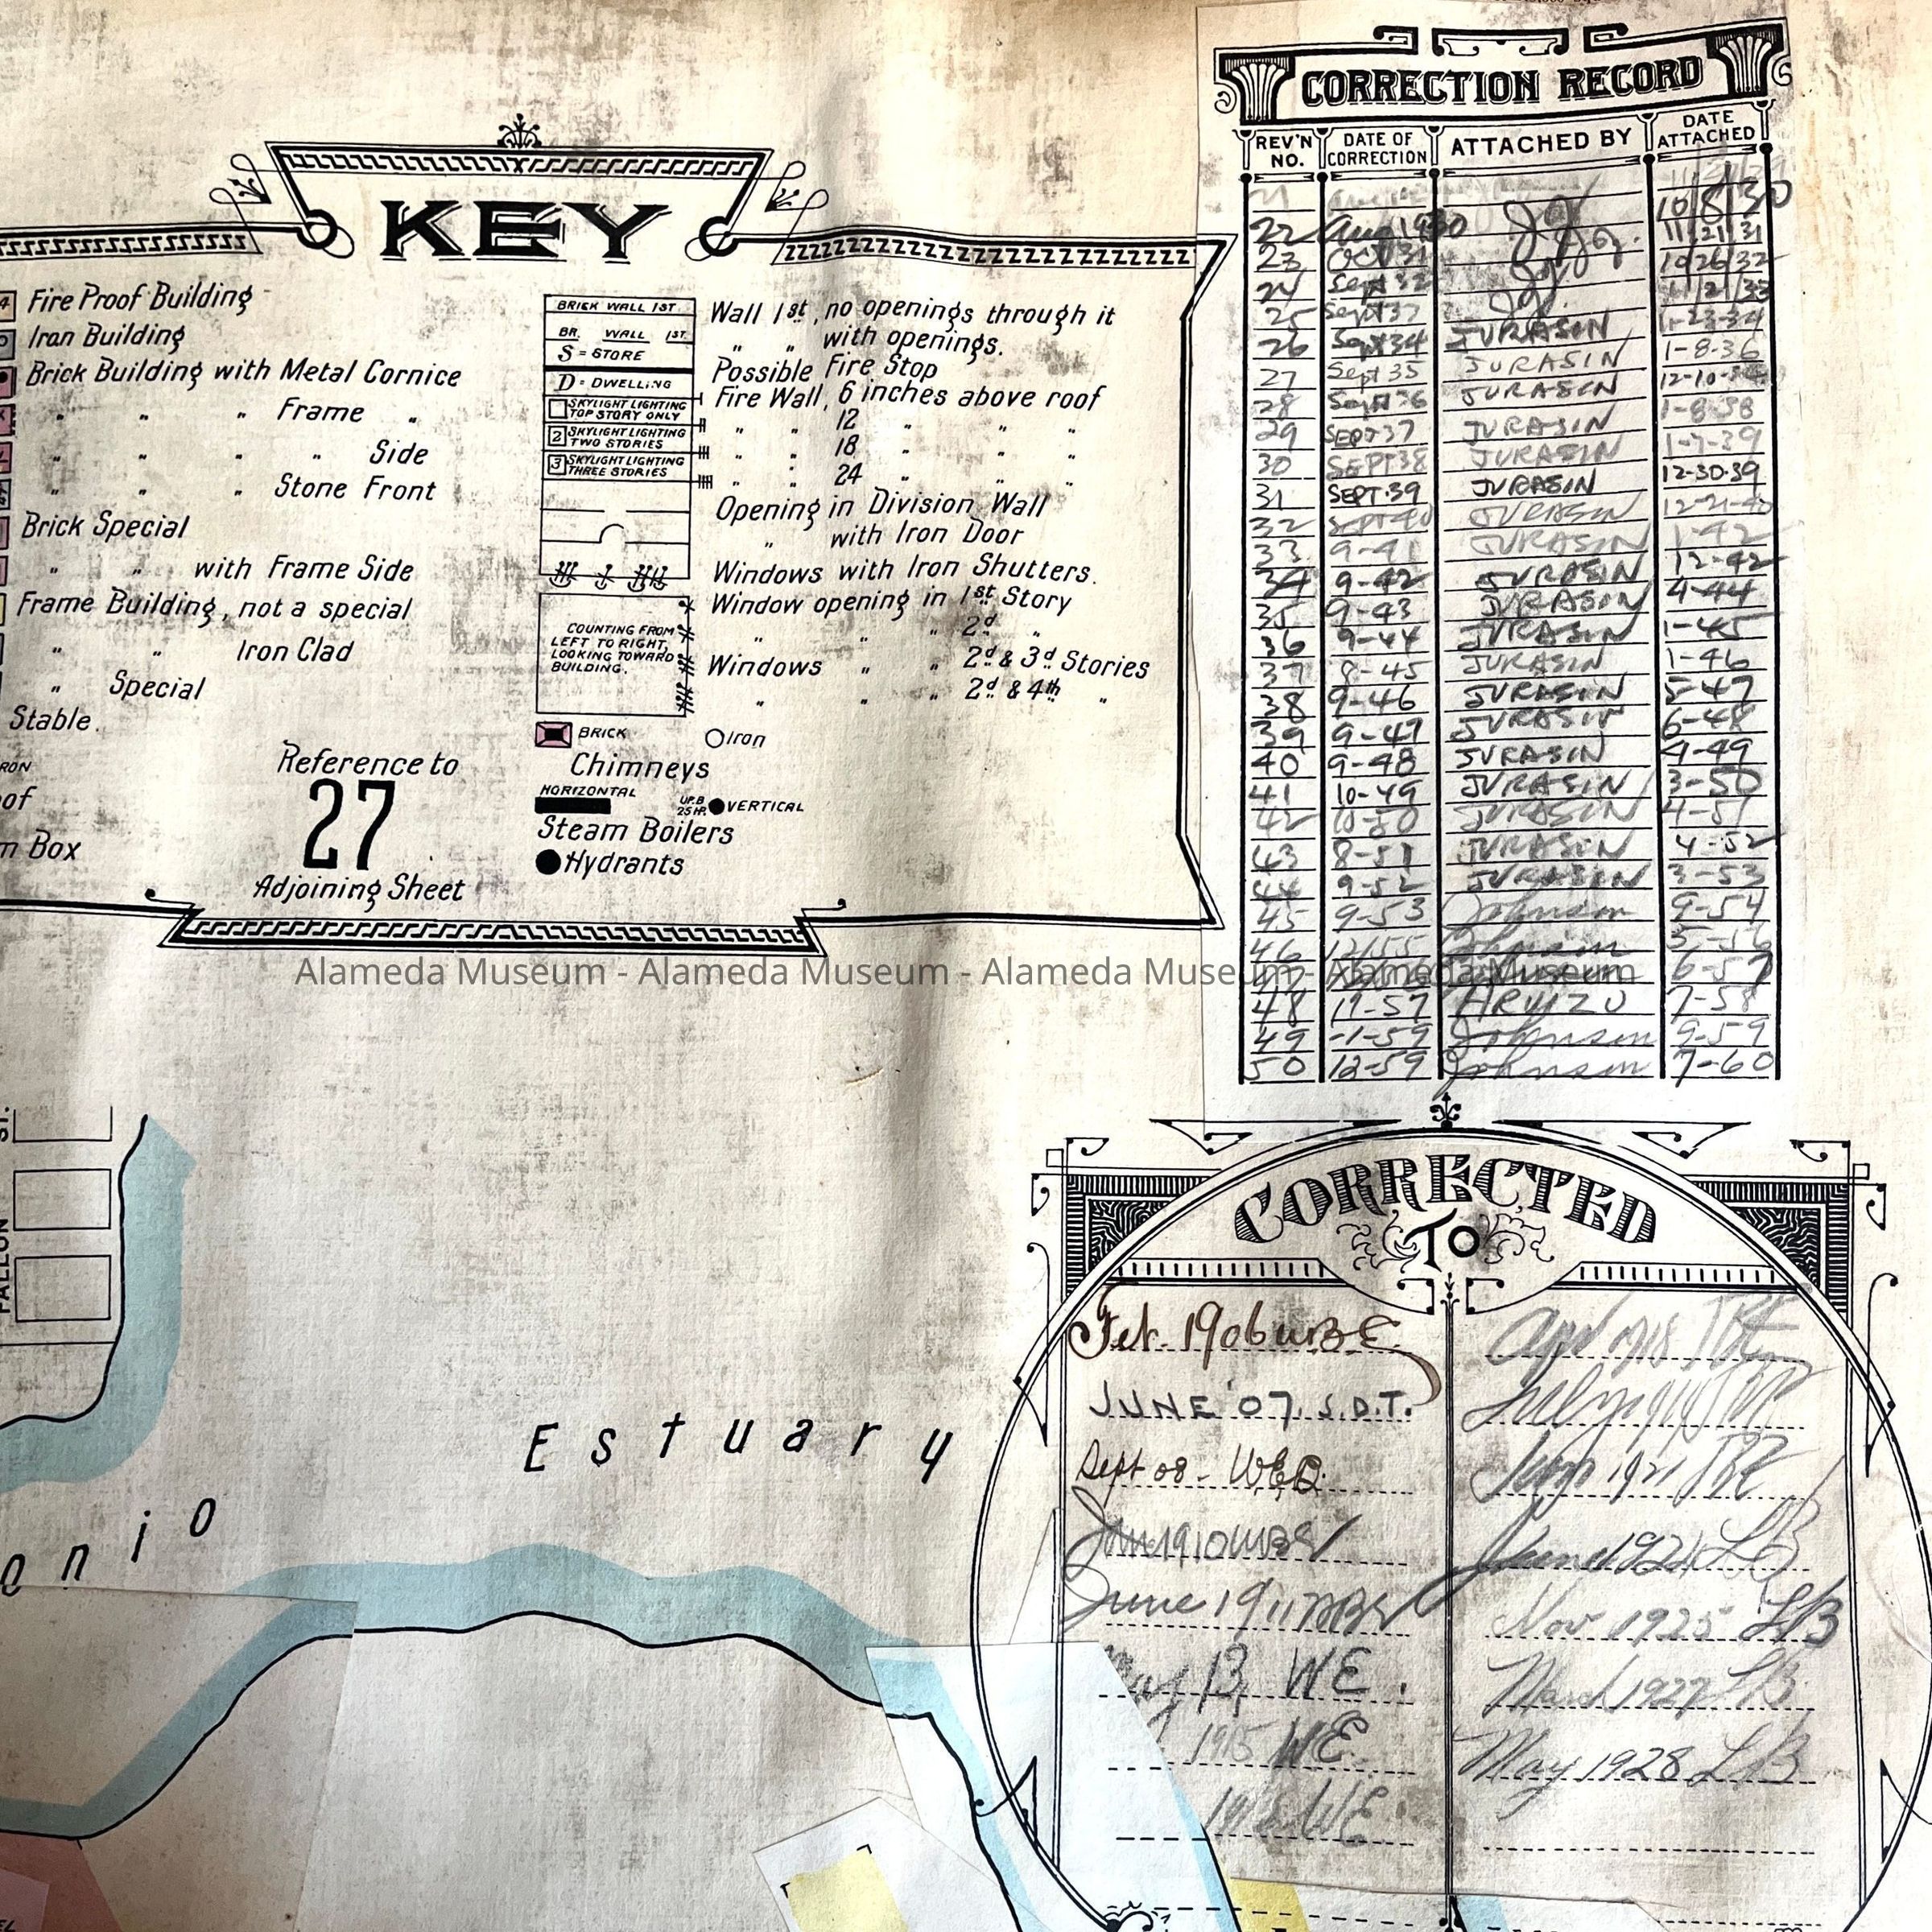 KEY
Fire Proof Building
Iron Building
Brick Building with Metal Cornice
" " " Frame "
" " " " Side
" " " Stone Front
Brick Special
" " with Frame Side
Frame Building, not a special
" " Iron Clad
" Special
Stable.
Reference to
27
Adjoining Sheet
BRICK WALL 1ST.
BR. WALL 1ST.
S = STORE
D = DWELLING
SKYLIGHT LIGHTING
TOP STORY ONLY
2 SKYLIGHT LIGHTING
TWO STORIES
3 SKYLIGHT LIGHTING
THREE STORIES
COUNTING FROM
LEFT TO RIGHT,
LOOKING TOWARD
BUILDING.
Wall 1st, no openings through it
" " with openings.
Possible Fire Stop
Fire Wall, 6 inches above roof
" " 12 " " "
" " 18 " " "
" " 24 " " "
Opening in Division Wall
" with Iron Door
Windows with Iron Shutters.
Window opening in 1st Story
" " " 2d "
Windows " " 2d & 3d Stories
" " " 2d & 4th "
BRICK Iron
Chimneys
HORIZONTAL VERTICAL
Steam Boilers
Hydrants
CORRECTION RECORD
REV'N NO. DATE OF CORRECTION ATTACHED BY DATE ATTACHED
22 Aug 1930 10/8/30
23 Oct 31 11/21/31
24 Sept 32 10/26/32
25 11/2/33
26 Sept 34 JURASIN 1-23-34
27 Sept 35 JURASIN 1-8-36
28 Sept 36 JURASIN
29 SEPT 37 JURASIN 1-8-38
30 SEPT 38 JURASIN 1-7-39
31 SEPT. 39 JURASIN 12-30-39
32 SEPT 40 JURASIN 12-21-40
33 9-41 JURASIN 1-42
34 9-42 JURASIN 12-42
35 9-43 JURASIN 4-44
36 9-44 JURASIN 1-45
37 8-45 JURASIN 1-46
38 9-46 JURASIN 5-47
39 9-47 JURASIN 6-48
40 9-48 JURASIN 4-49
41 10-49 JURASIN 3-50
42 10-50 JURASIN 4-51
43 8-51 JURASIN 4-52
44 9-52 JURASIN 3-53
45 9-53 Johnson 9-54
46 12/55 Johnson 5-56
6-57
48 11-57 ARVIZU 7-58
49 -1-59 Johnson 9-59
50 12-59 Johnson 7-60
Alameda Museum - Alameda Museum - Alameda Museum - Alameda Museum
CORRECTED
TO
Feb. 1906 WBE
JUNE '07. S.D.T.
Sept 08 - WEB.
Jan 1910 WBE
June 1911 WBE
May 13 WE.
1915 WE.
WE.
July
June 1921
June 1924 LB
Nov 1925 LB
March 1927 LB.
May 1928 LB
FALLON
ST.
Estuary
onio